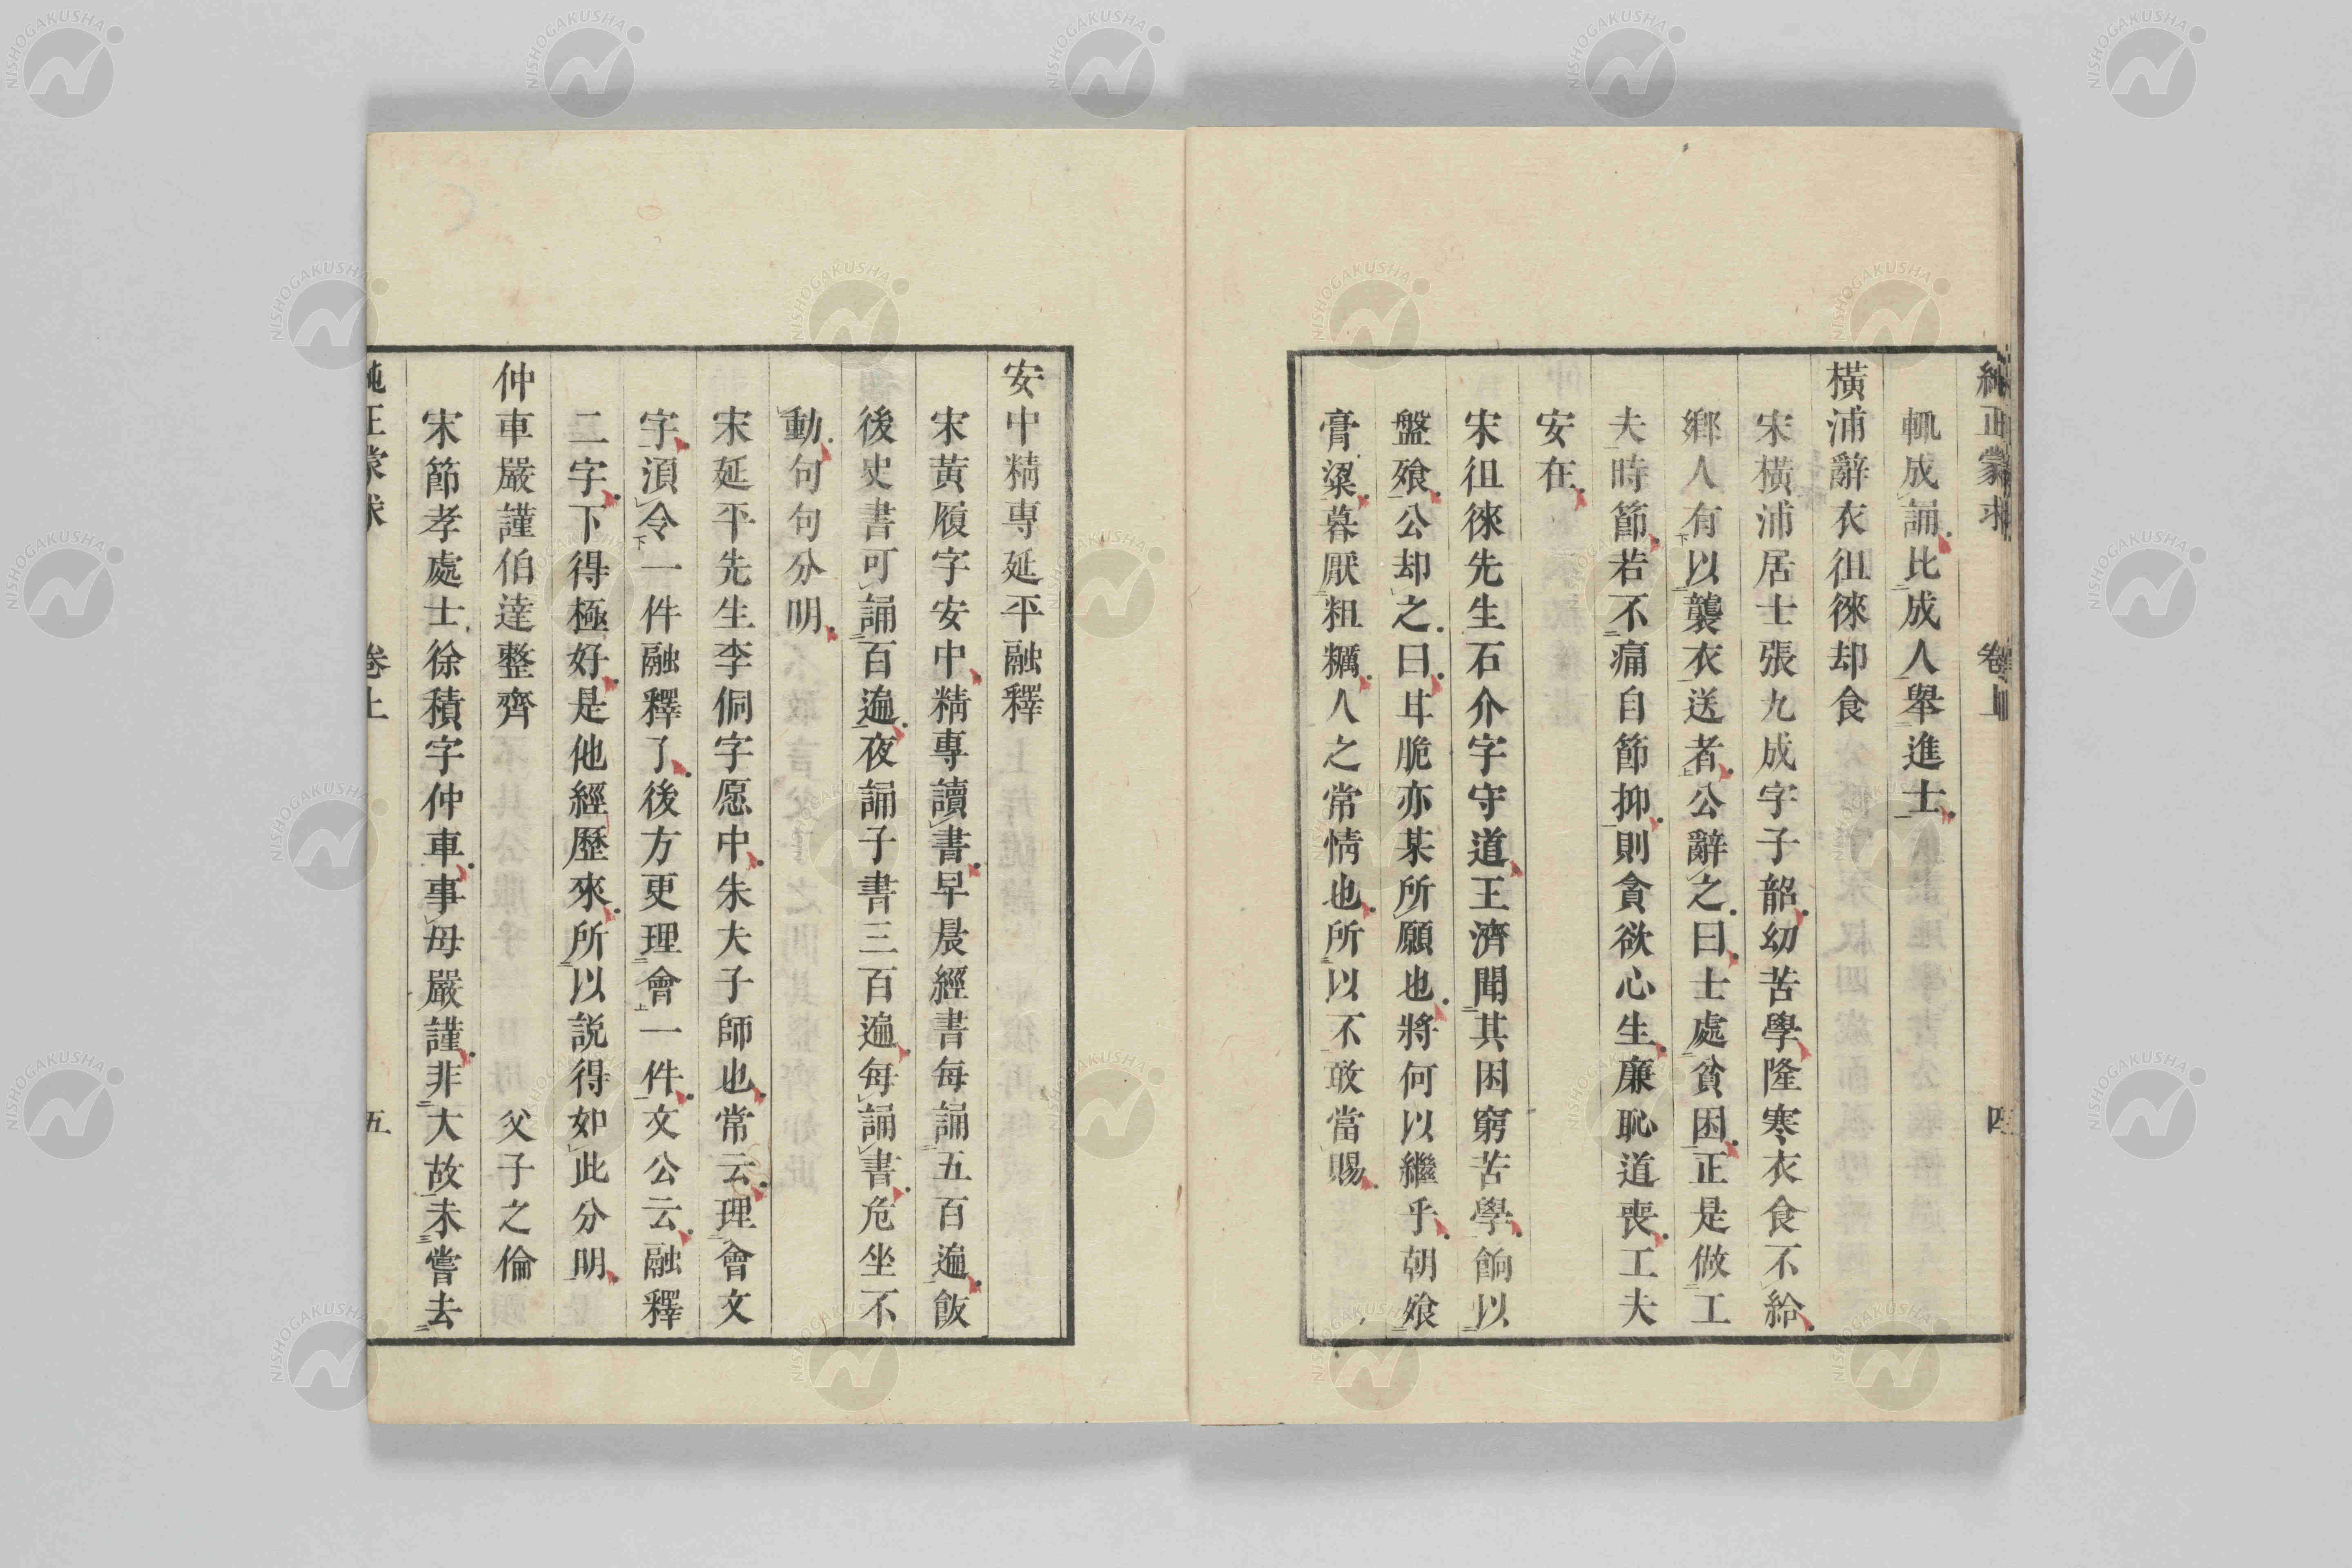 純正蒙求 卷上 四
輒成誦比成人舉進士
橫浦辭衣徂徠却食
宋橫浦居士張九成字子韶幼苦學隆寒衣食不給
鄉人有以襲衣送者公辭之曰士處貧困正是做工
夫時節若不痛自節抑則貪欲心生廉恥道喪工夫
安在
宋徂徠先生石介字守道王濟聞其困窮苦學餉以
盤飧公却之曰甘脆亦某所願也將何以繼乎朝飧
膏粱暮厭粗糲人之常情也所以不敢當賜
安中精專延平融釋
宋黃履字安中精專讀書早晨經書每誦五百遍飯
後史書可誦百遍夜誦子書三百遍每誦書危坐不
動句句分明
宋延平先生李侗字愿中朱夫子師也常云理會文
字須令一件融釋了後方更理會一件文公云融釋
二字下得極好是他經歷來所以説得如此分明
仲車嚴謹伯逹整齊 父子之倫
宋節孝處士徐積字仲車事母嚴謹非大故未嘗去
純正蒙求 卷上 五
NISHOGAKUSHA